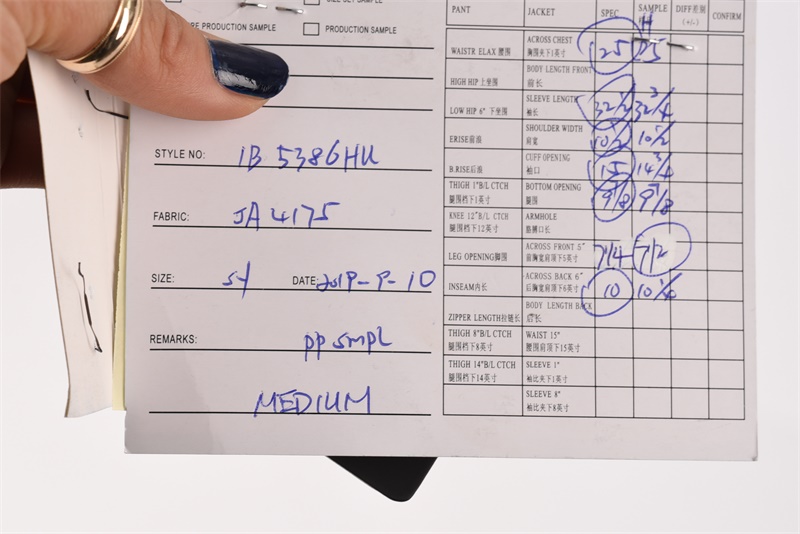 PRODUCTION SAMPLE
PRODUCTION SAMPLE
STYLE NO: 1B 5386HU
FABRIC: JA 4175
SIZE: DATE: 2019-9-10
REMARKS: PP SMPL
MEDIUM
PANT JACKET SPEC SAMPLE DIFF差别 (+/-) CONFIRM
WAISTR ELAX 腰围 ACROSS CHEST 胸围夹下1英寸 25 25
HIGH HIP 上坐围 BODY LENGTH FRONT 前长
LOW HIP 6" 下坐围 SLEEVE LENGTH 袖长 32 1/2 32 3/4
F.RISE前浪 SHOULDER WIDTH 肩宽 10 1/2 10 1/2
B.RISE后浪 CUFF OPENING 袖口 15 14 3/4
THIGH 1"B/L CTCH 腿围档下1英寸 BOTTOM OPENING 腿围 9 1/8 9 1/8
KNEE 12"B/L CTCH 腿围档下12英寸 ARMHOLE 胳膊口长
LEG OPENING脚围 ACROSS FRONT 5" 前胸宽肩顶下5英寸 7 1/4 7 1/2
INSEAM内长 ACROSS BACK 6" 后胸宽肩顶下6英寸 10 10 1/4
ZIPPER LENGTH拉链长 BODY LENGTH BACK 后长
THIGH 8"B/L CTCH 腿围档下8英寸 WAIST 15" 腰围肩顶下15英寸
THIGH 14"B/L CTCH 腿围档下14英寸 SLEEVE 1" 袖比夹下1英寸
SLEEVE 8" 袖比夹下8英寸